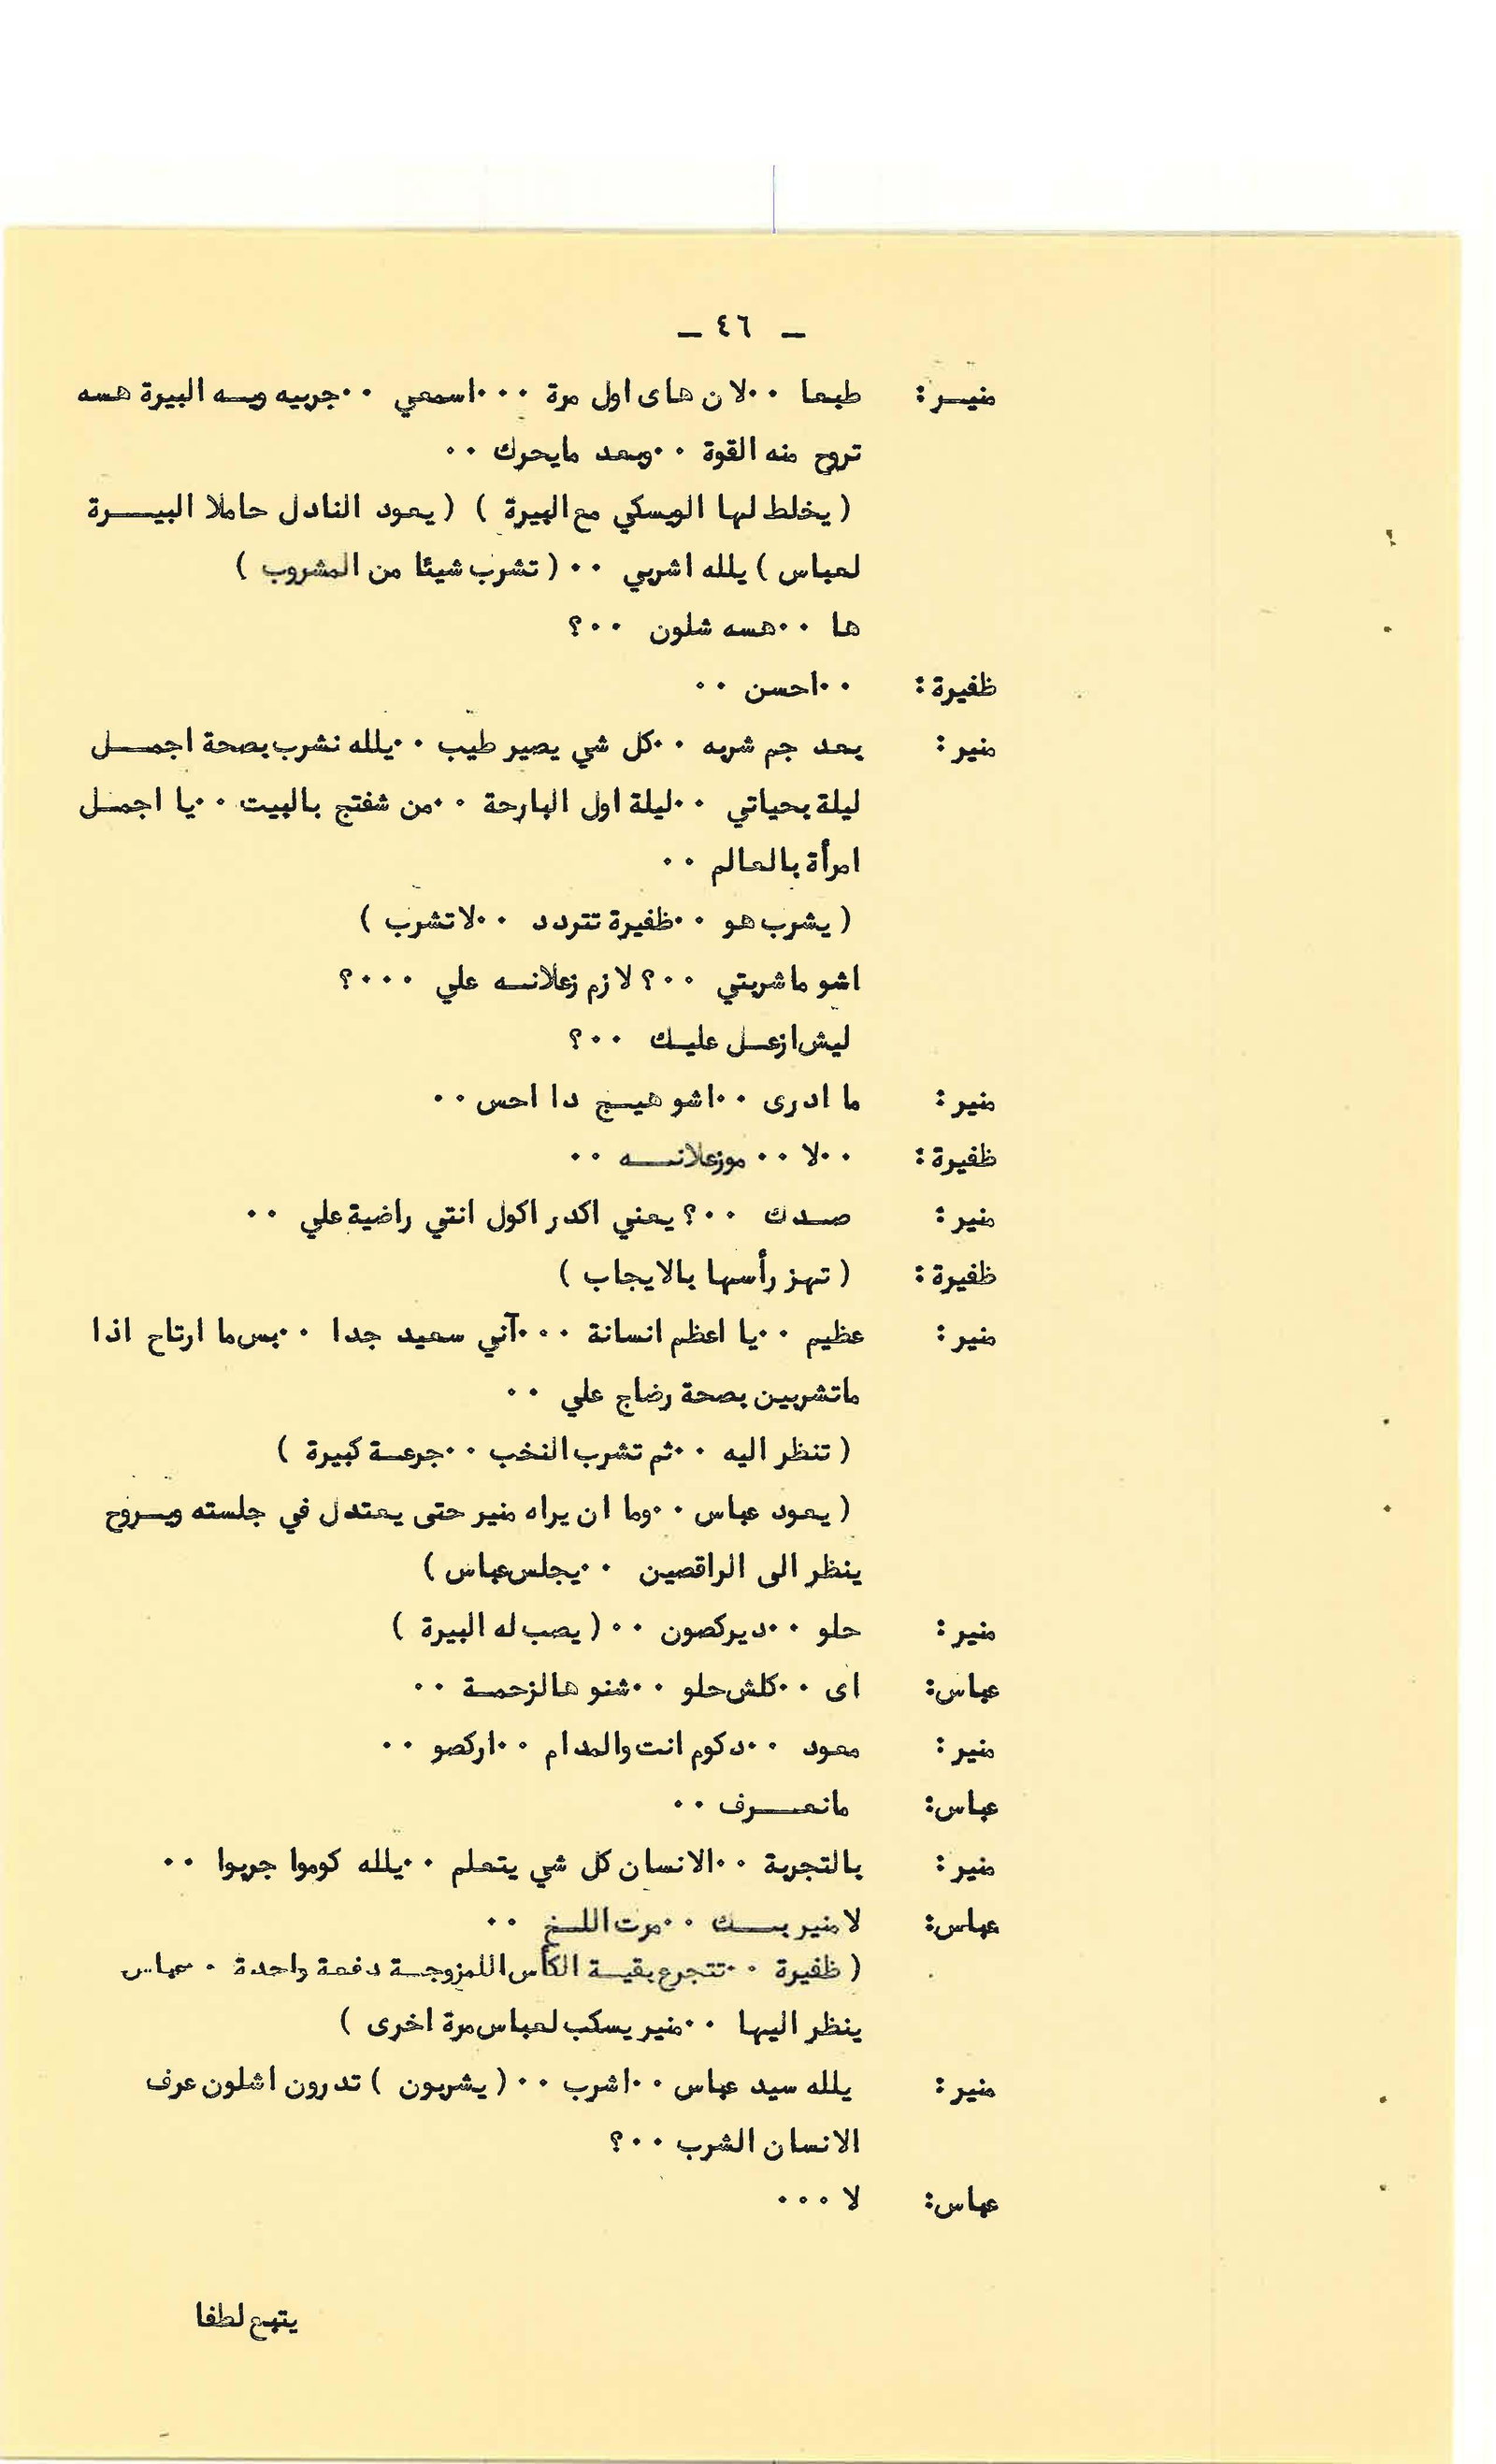 – ٤٦ –
منيـر: طبعا ٠٠لان هاى اول مرة ٠٠٠اسمعي ٠٠جربيه ويـه البيرة هسه
تروح منه القوة ٠٠وبعد مايحرك ٠٠
( يخلط لها الويسكي مع البيرة ) ( يعود النادل حاملا البيــرة
لعباس ) يلله اشربي ٠٠ ( تشرب شيئا من المشروب )
ها ٠٠هسه شلون ٠٠؟
ظفيرة: ٠٠احسن ٠٠
منير: بعد جم شربه ٠٠كل شي يصير طيب ٠٠يلله نشرب بصحة اجمــل
ليلة بحياتي ٠٠ليلة اول البارحة ٠٠من شفتج بالبيت ٠٠يا اجمـل
امرأة بالعالم ٠٠
( يشرب هو ٠٠ظفيرة تتردد ٠٠لاتشرب )
اشو ماشربتي ٠٠؟ لازم زعلانـه علي ٠٠٠؟
ليش ازعـل عليـك ٠٠؟
منير: ما ادرى ٠٠اشو هيـج دا احس ٠٠
ظفيرة: ٠٠لا ٠٠موزعلانــه ٠٠
منير: صـدك ٠٠؟ يعني اكدر اكول انتي راضية علي ٠٠
ظفيرة: ( تهز رأسها بالايجاب )
منير: عظيم ٠٠يا اعظم انسانة ٠٠٠آني سعيد جدا ٠٠بس ما ارتاح اذا
ماتشربين بصحة رضاج علي ٠٠
( تنظر اليه ٠٠ثم تشرب النخب ٠٠جرعـة كبيرة )
( يعود عباس ٠٠وما ان يراه منير حتى يعتدل في جلسته ويـروح
ينظر الى الراقصين ٠٠يجلس عباس )
منير: حلو ٠٠ديركصون ٠٠ ( يصب له البيرة )
عباس: اى ٠٠كلش حلو ٠٠شنو هالزحمـة ٠٠
منير: معود ٠٠دكوم انت والمدام ٠٠اركصو ٠٠
عباس: مانعــرف ٠٠
منير: بالتجربة ٠٠الانسان كل شي يتعلم ٠٠يلله كوموا جربوا ٠٠
عباس: لا منير بـك ٠٠مرت اللـخ ٠٠
( ظفيرة ٠٠تتجرع بقيـة الكأس اللمزوجـة دفعة واحدة ٠ عباس
ينظر اليها ٠٠منير يسكب لعباس مرة اخرى )
منير: يلله سيد عباس ٠٠اشرب ٠٠ ( يشربون ) تدرون اشلون عرف
الانسان الشرب ٠٠؟
عباس: لا ٠٠٠
يتبع لطفا